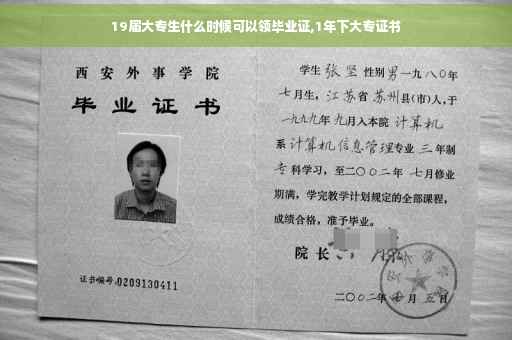 19届大专生什么时候可以领毕业证,1年下大专证书
西安外事学院
毕业证书
证书编号:0209130411
学生张坚性别男一九八〇年
七月生，江苏省苏州县(市)人，于
一九九九年九月入本院计算机
系计算机信息管理专业三年制
专科学习，至二〇〇二年七月修业
期满，学完教学计划规定的全部课程，
成绩合格，准予毕业。
院长
二〇〇二年 月五日